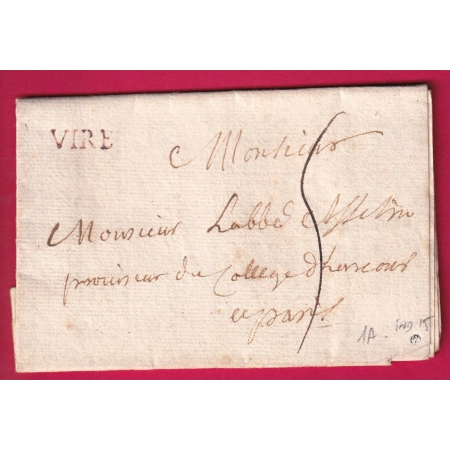 VIRE
Monsieur
Monsieur Labbé Asselin
proviseur du College d'harcour
a paris
1A. IND 15